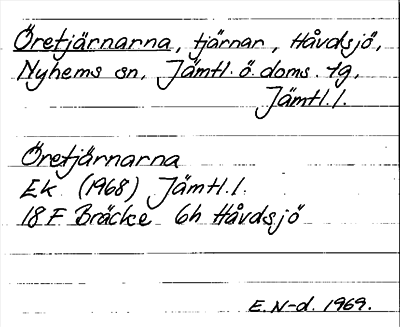 Öretjärnarna, tjärnar, Håvdsjö,
Nyhems sn, Jämtl. ö. doms. tg,
Jämtl. l.
Öretjärnarna
Ek (1968) Jämtl. l.
18 F Bräcke 6h Håvdsjö
E. N-d. 1969.